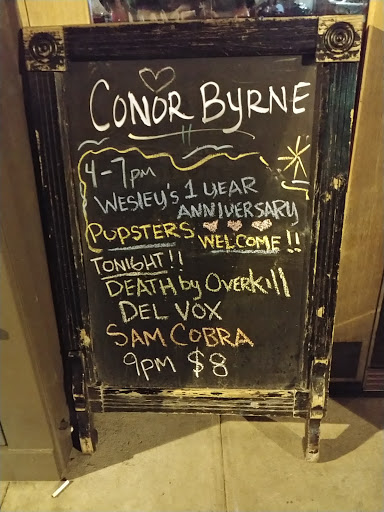 CONOR BYRNE
4-7PM
WESLEY'S 1 YEAR
ANNIVERSARY
PUPSTERS WELCOME!!
TONIGHT!!
DEATH by OVERKill
DEL VOX
SAM COBRA
9PM $8